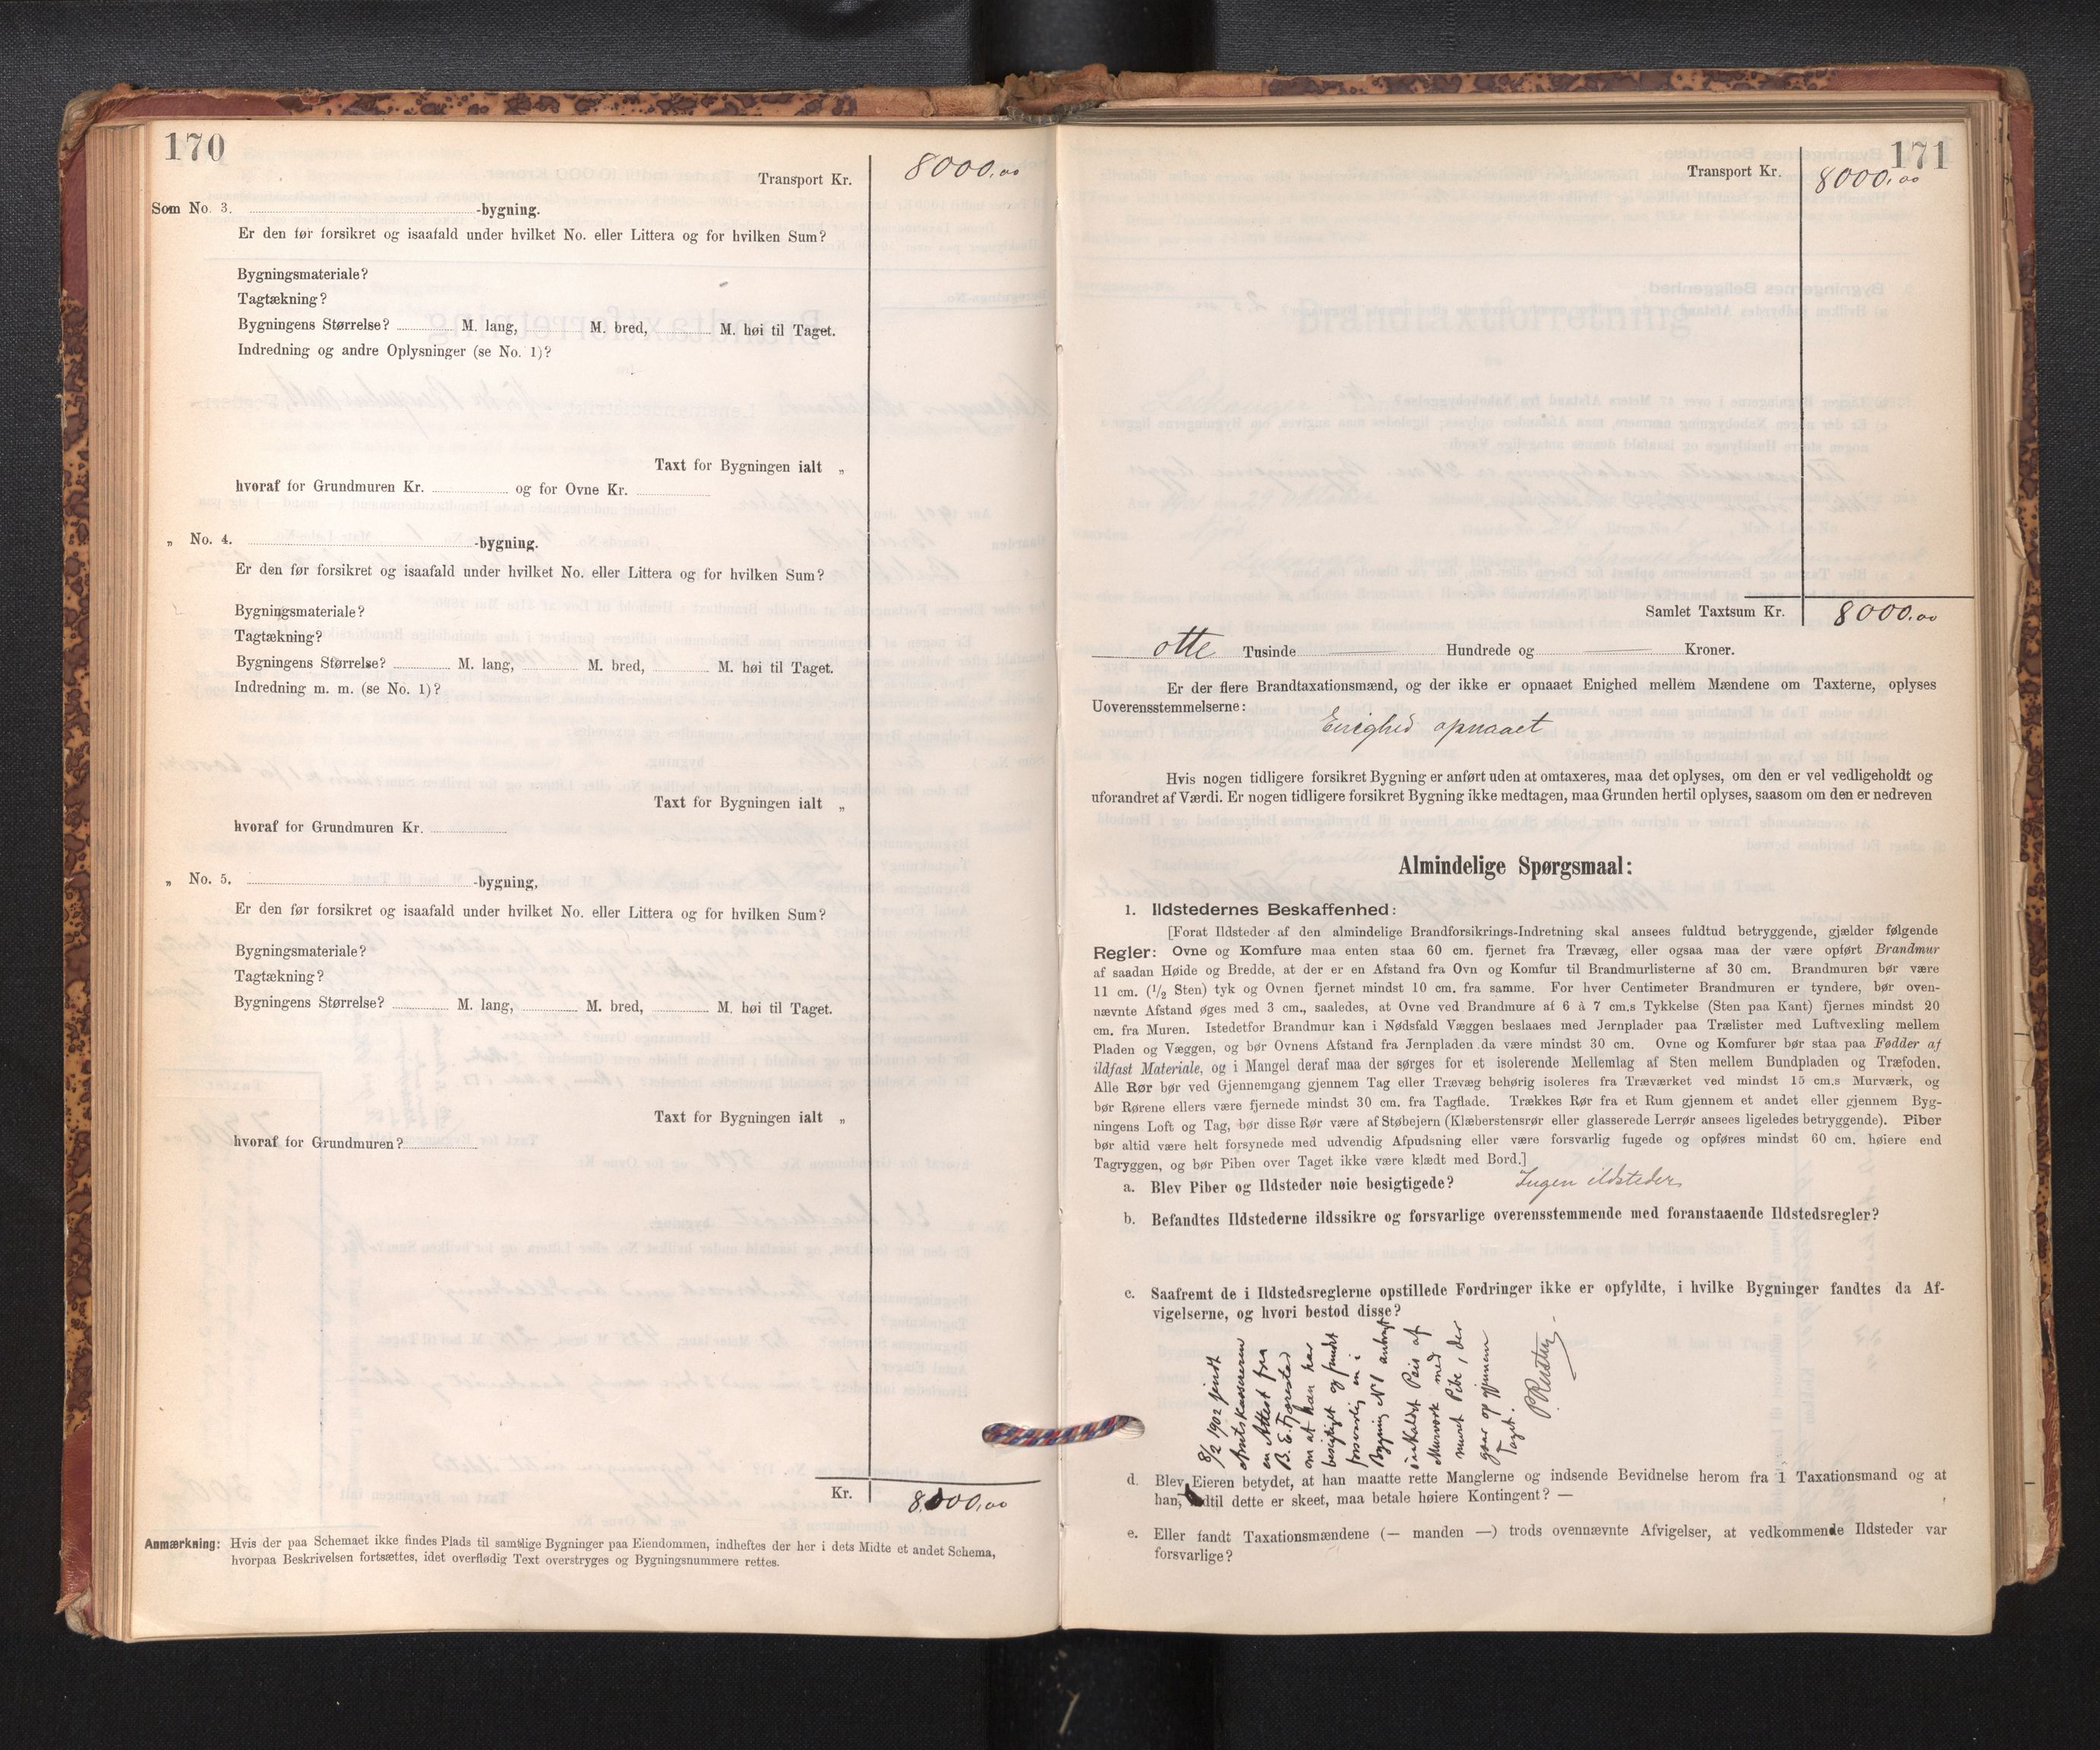 170
Transport Kr. 8000.00
Som No. 3. -bygning.
Er den før forsikret og isaafald under hvilket No. eller Littera og for hvilken Sum?
Bygningsmateriale?
Tagtækning?
Bygningens Størrelse? M. lang, M. bred, M. høi til Taget.
Indredning og andre Oplysninger (se No. 1)?
Taxt for Bygningen ialt „
hvoraf for Grundmuren Kr. og for Ovne Kr.
„ No. 4. -bygning.
Er den før forsikret og isaafald under hvilket No. eller Littera og for hvilken Sum?
Bygningsmateriale?
Tagtækning?
Bygningens Størrelse? M. lang, M. bred, M. høi til Taget.
Indredning m. m. (se No. 1)?
Taxt for Bygningen ialt „
hvoraf for Grundmuren Kr.
„ No. 5. -bygning,
Er den før forsikret og isaafald under hvilket No. eller Littera og for hvilken Sum?
Bygningsmateriale?
Tagtækning?
Bygningens Størrelse? M. lang, M. bred, M. høi til Taget.
Taxt for Bygningen ialt „
hvoraf for Grundmuren?
Kr. 8000,00
Anmærkning: Hvis der paa Schemaet ikke findes Plads til samtlige Bygninger paa Eiendommen, indheftes der her i dets Midte et andet Schema,
hvorpaa Beskrivelsen fortsættes, idet overflødig Text overstryges og Bygningsnummere rettes.
171
Transport Kr. 8000,00
Samlet Taxtsum Kr. 8000.00
otte Tusinde Hundrede og Kroner.
Er der flere Brandtaxationsmænd, og der ikke er opnaaet Enighed mellem Mændene om Taxterne, oplyses
Uoverensstemmelserne:
Enighed opnaaet
Hvis nogen tidligere forsikret Bygning er anført uden at omtaxeres, maa det oplyses, om den er vel vedligeholdt og
uforandret af Værdi. Er nogen tidligere forsikret Bygning ikke medtagen, maa Grunden hertil oplyses, saasom om den er nedreven
Almindelige Spørgsmaal:
1. Ildstedernes Beskaffenhed:
[Forat Ildsteder af den almindelige Brandforsikrings-Indretning skal ansees fuldtud betryggende, gjælder følgende
Regler: Ovne og Komfure maa enten staa 60 cm. fjernet fra Trævæg, eller ogsaa maa der være opført Brandmur
af saadan Høide og Bredde, at der er en Afstand fra Ovn og Komfur til Brandmurlisterne af 30 cm. Brandmuren bør være
11 cm. (1/2 Sten) tyk og Ovnen fjernet mindst 10 cm. fra samme. For hver Centimeter Brandmuren er tyndere, bør oven-
nævnte Afstand øges med 3 cm., saaledes, at Ovne ved Brandmure af 6 à 7 cm.s Tykkelse (Sten paa Kant) fjernes mindst 20
cm. fra Muren. Istedetfor Brandmur kan i Nødsfald Væggen beslaaes med Jernplader paa Trælister med Luftvexling mellem
Pladen og Væggen, og bør Ovnens Afstand fra Jernpladen da være mindst 30 cm. Ovne og Komfurer bør staa paa Fødder af
ildfast Materiale, og i Mangel deraf maa der sørges for et isolerende Mellemlag af Sten mellem Bundpladen og Træfoden.
Alle Rør bør ved Gjennemgang gjennem Tag eller Trævæg behørig isoleres fra Træværket ved mindst 15 cm.s Murværk, og
bør Rørene ellers være fjernede mindst 30 cm. fra Tagflade. Trækkes Rør fra et Rum gjennem et andet eller gjennem Byg-
ningens Loft og Tag, bør disse Rør være af Støbejern (Klæberstensrør eller glasserede Lerrør ansees ligeledes betryggende). Piber
bør altid være helt forsynede med udvendig Afpudsning eller være forsvarlig fugede og opføres mindst 60 cm. høiere end
Tagryggen, og bør Piben over Taget ikke være klædt med Bord.]
a. Blev Piber og Ildsteder nøie besigtigede? Ingen ildsteder
b. Befandtes Ildstederne ildssikre og forsvarlige overensstemmende med foranstaaende Ildstedsregler?
c. Saafremt de i Ildstedsreglerne opstillede Fordringer ikke er opfyldte, i hvilke Bygninger fandtes da Af-
vigelserne, og hvori bestod disse?
8/2 1902 sendt
Amtskassereren
en Attest fra
B. E. Tjønestad
om at han har
besigtiget og fundet
forsvarlig en i
Bygning N1 anbragt
saakaldt Peis af
Murværk med
muret Pibe, der
gaar op gjennem
Taget.
d. Blev Eieren betydet, at han maatte rette Manglerne og indsende Bevidnelse herom fra 1 Taxationsmand og at
han, indtil dette er skeet, maa betale høiere Kontingent? —
e. Eller fandt Taxationsmændene (— manden —) trods ovennævnte Afvigelser, at vedkommende Ildsteder var
forsvarlige?